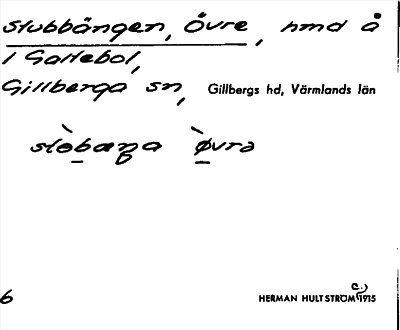 Stubbängen, Övre, hmd å
1 Gallebol,
Gillberga sn, Gillbergs hd, Värmlands län
stòbæŋa ø̀vrə
6 HERMAN HULTSTRÖM (c.) 1915